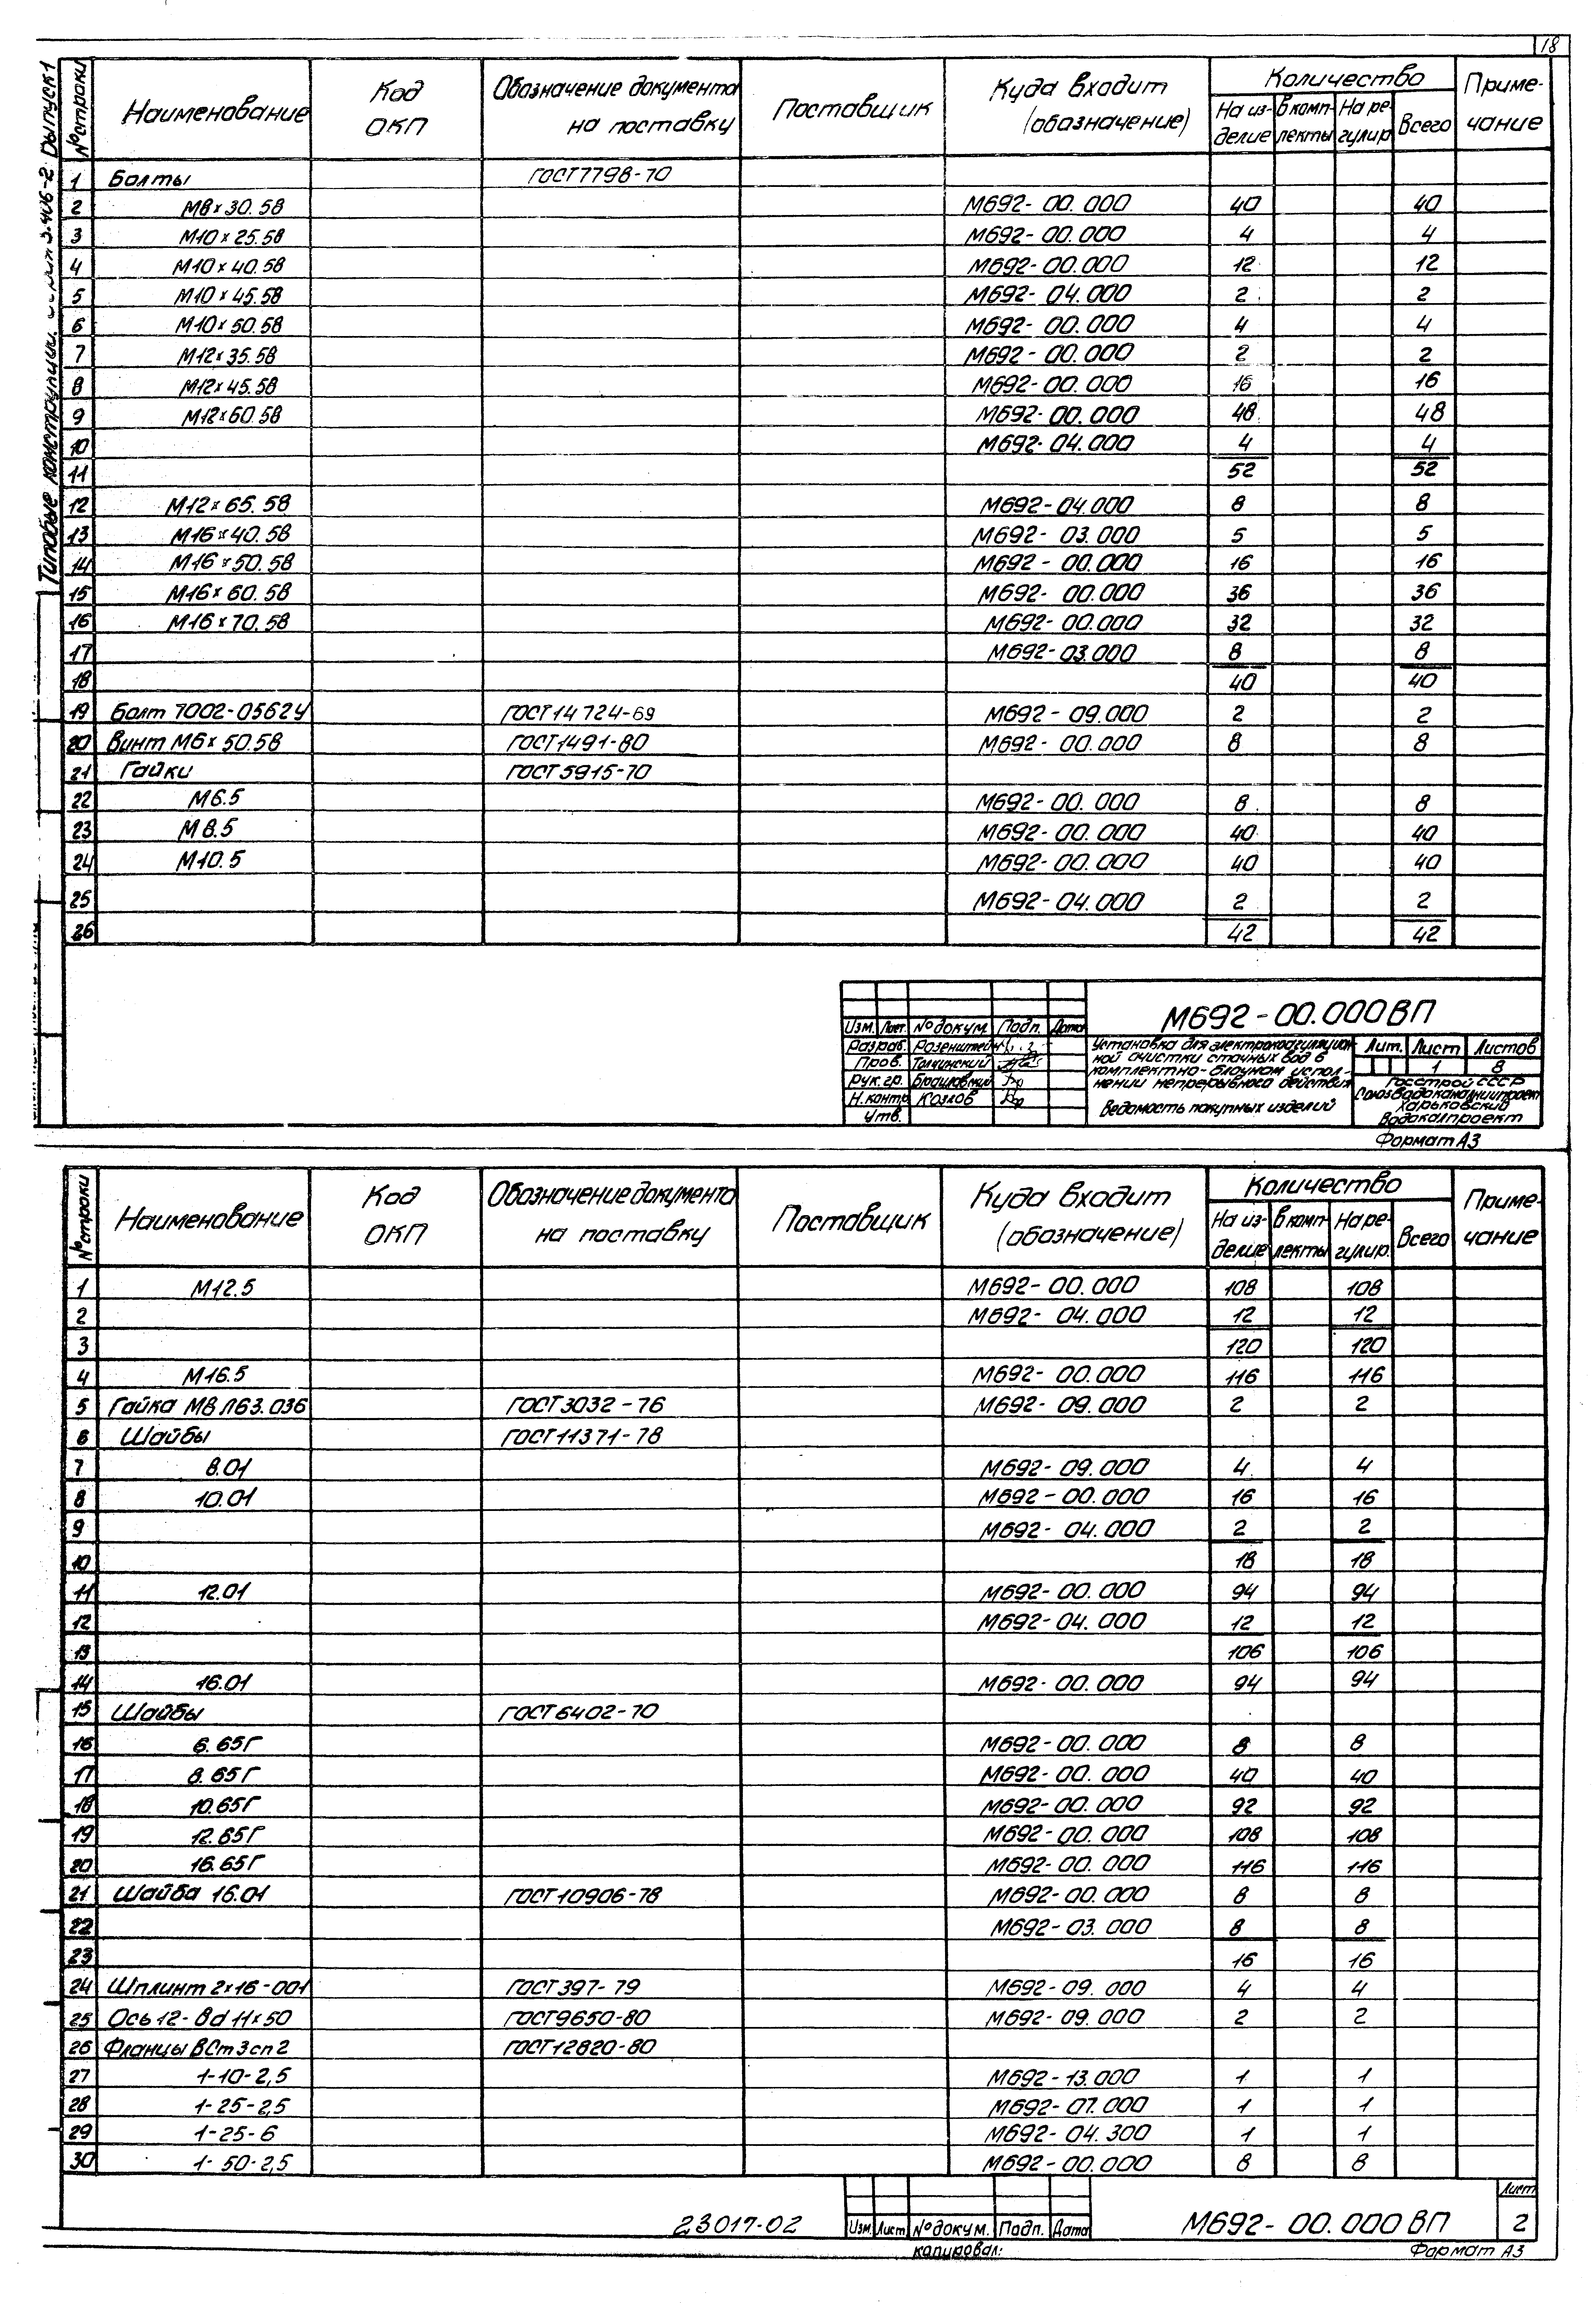 18
Типовые конструкции. 3.406-2 Выпуск 1
№ строки Наименование Код ОКП Обозначение документа на поставку Поставщик Куда входит (обозначение) Количество На изделие В комплекты На регулир. Всего Примечание
1 Болты ГОСТ 7798-70
2 М8×30.58 М692-00.000 40 40
3 М10×25.58 М692-00.000 4 4
4 М10×40.58 М692-00.000 12 12
5 М10×45.58 М692-04.000 2 2
6 М10×50.58 М692-00.000 4 4
7 М12×35.58 М692-00.000 2 2
8 М12×45.58 М692-00.000 16 16
9 М12×60.58 М692-00.000 48 48
10 М692-04.000 4 4
11 52 52
12 М12×65.58 М692-04.000 8 8
13 М16×40.58 М692-03.000 5 5
14 М16×50.58 М692-00.000 16 16
15 М16×60.58 М692-00.000 36 36
16 М16×70.58 М692-00.000 32 32
17 М692-03.000 8 8
18 40 40
19 Болт 7002-0562У ГОСТ 14724-69 М692-09.000 2 2
20 Винт М6×50.58 ГОСТ 1491-80 М692-00.000 8 8
21 Гайки ГОСТ 5915-70
22 М6.5 М692-00.000 8 8
23 М8.5 М692-00.000 40 40
24 М10.5 М692-00.000 40 40
25 М692-04.000 2 2
26 42 42
М692-00.000ВП
Изм. Лист №докум. Подп. Дата
Разраб. Розенштейн
Пров. Толчинский
Рук.гр.
Н.контр Козлов
Утв.
Установка для электрокоагуляцион-
ной очистки сточных вод в
комплектно-блочном испол-
нении непрерывного действия
Ведомость покупных изделий
Лит. Лист Листов
1 8
Госстрой СССР
Союзводоканалниипроект
Харьковский
Водоканалпроект
Формат А3
№ строки Наименование Код ОКП Обозначение документа на поставку Поставщик Куда входит (обозначение) Количество На изделие В комплекты На регулир. Всего Примечание
1 М12.5 М692-00.000 108 108
2 М692-04.000 12 12
3 120 120
4 М16.5 М692-00.000 116 116
5 Гайка М8 Л63.036 ГОСТ 3032-76 М692-09.000 2 2
6 Шайбы ГОСТ 11371-78
7 8.01 М692-09.000 4 4
8 10.01 М692-00.000 16 16
9 М692-04.000 2 2
10 18 18
11 12.01 М692-00.000 94 94
12 М692-04.000 12 12
13 106 106
14 16.01 М692-00.000 94 94
15 Шайбы ГОСТ 6402-70
16 6.65Г М692-00.000 8 8
17 8.65Г М692-00.000 40 40
18 10.65Г М692-00.000 92 92
19 12.65Г М692-00.000 108 108
20 16.65Г М692-00.000 116 116
21 Шайба 16.01 ГОСТ 10906-78 М692-00.000 8 8
22 М692-03.000 8 8
23 16 16
24 Шплинт 2×16-001 ГОСТ 397-79 М692-09.000 4 4
25 Ось 12-8d11×50 ГОСТ 9650-80 М692-09.000 2 2
26 Фланцы ВСт3сп2 ГОСТ 12820-80
27 1-10-2,5 М692-13.000 1 1
28 1-25-2,5 М692-07.000 1 1
29 1-25-6 М692-04.300 1 1
30 1-50-2,5 М692-00.000 8 8
23017-02
Изм. Лист №докум. Подп. Дата
М692-00.000 ВП
Лист
2
копировал:
Формат А3